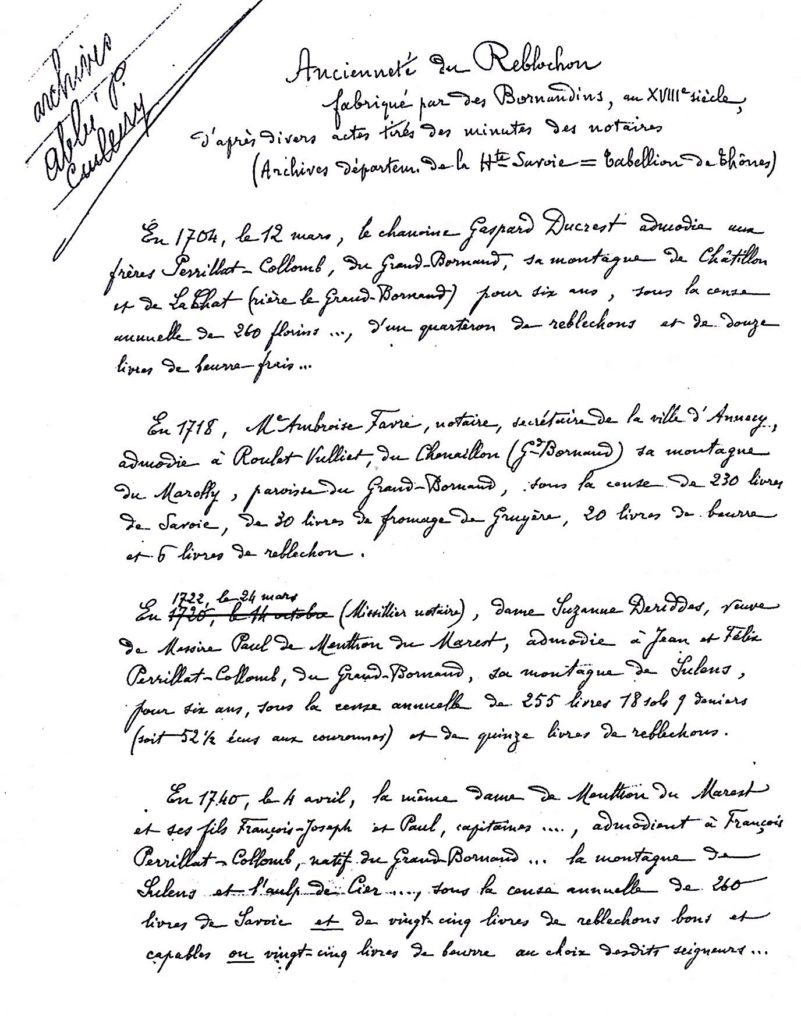 archives
abbé J.
Ancienneté du Reblochon
fabriqué par des Bornandins, au XVIIIe siècle,
d'après divers actes tirés des minutes des notaires
(Archives départem. de la Hte Savoie = Tabellion de Thônes)
En 1704, le 12 mars, le chanoine Gaspard Ducrest admodie aux
frères Perrillat-Collomb, du Grand-Bornand, sa montagne de Châtillon
et de La Chat (rière le Grand-Bornand) pour six ans, sous la cense
annuelle de 260 florins ..., d'un quarteron de reblechons et de douze
livres de beurre frais...
En 1718, Me Ambroise Favre, notaire, secrétaire de la ville d'Annecy,
admodie à Roulet Vulliet, du Chenaillon (Gd-Bornand) sa montagne
du Marolly, paroisse du Grand-Bornand, sous la cense de 230 livres
de Savoie, de 30 livres de fromage de Gruyère, 20 livres de beurre
et 6 livres de reblechon.
1722, le 24 mars
En 1720, le 14 octobre (Missillier notaire), dame Suzanne Deriddes, veuve
de Messire Paul de Menthon du Marest, admodie à Jean et Félix
Perrillat-Collomb, du Grand-Bornand, sa montagne de Sulens,
pour six ans, sous la cense annuelle de 255 livres 18 sols 9 deniers
(soit 52 ½ écus aux couronnes) et de quinze livres de reblechons.
En 1740, le 4 avril, la même dame de Menthon du Marest
et ses fils François-Joseph et Paul, capitaines ...., admodient à François
Perrillat-Collomb, natif du Grand-Bornand ... la montagne de
Sulens et l'aulp de Cier ..., sous la cense annuelle de 260
livres de Savoie et de vingt-cinq livres de reblechons bons et
capables ou vingt-cinq livres de beurre au choix desdits seigneurs...